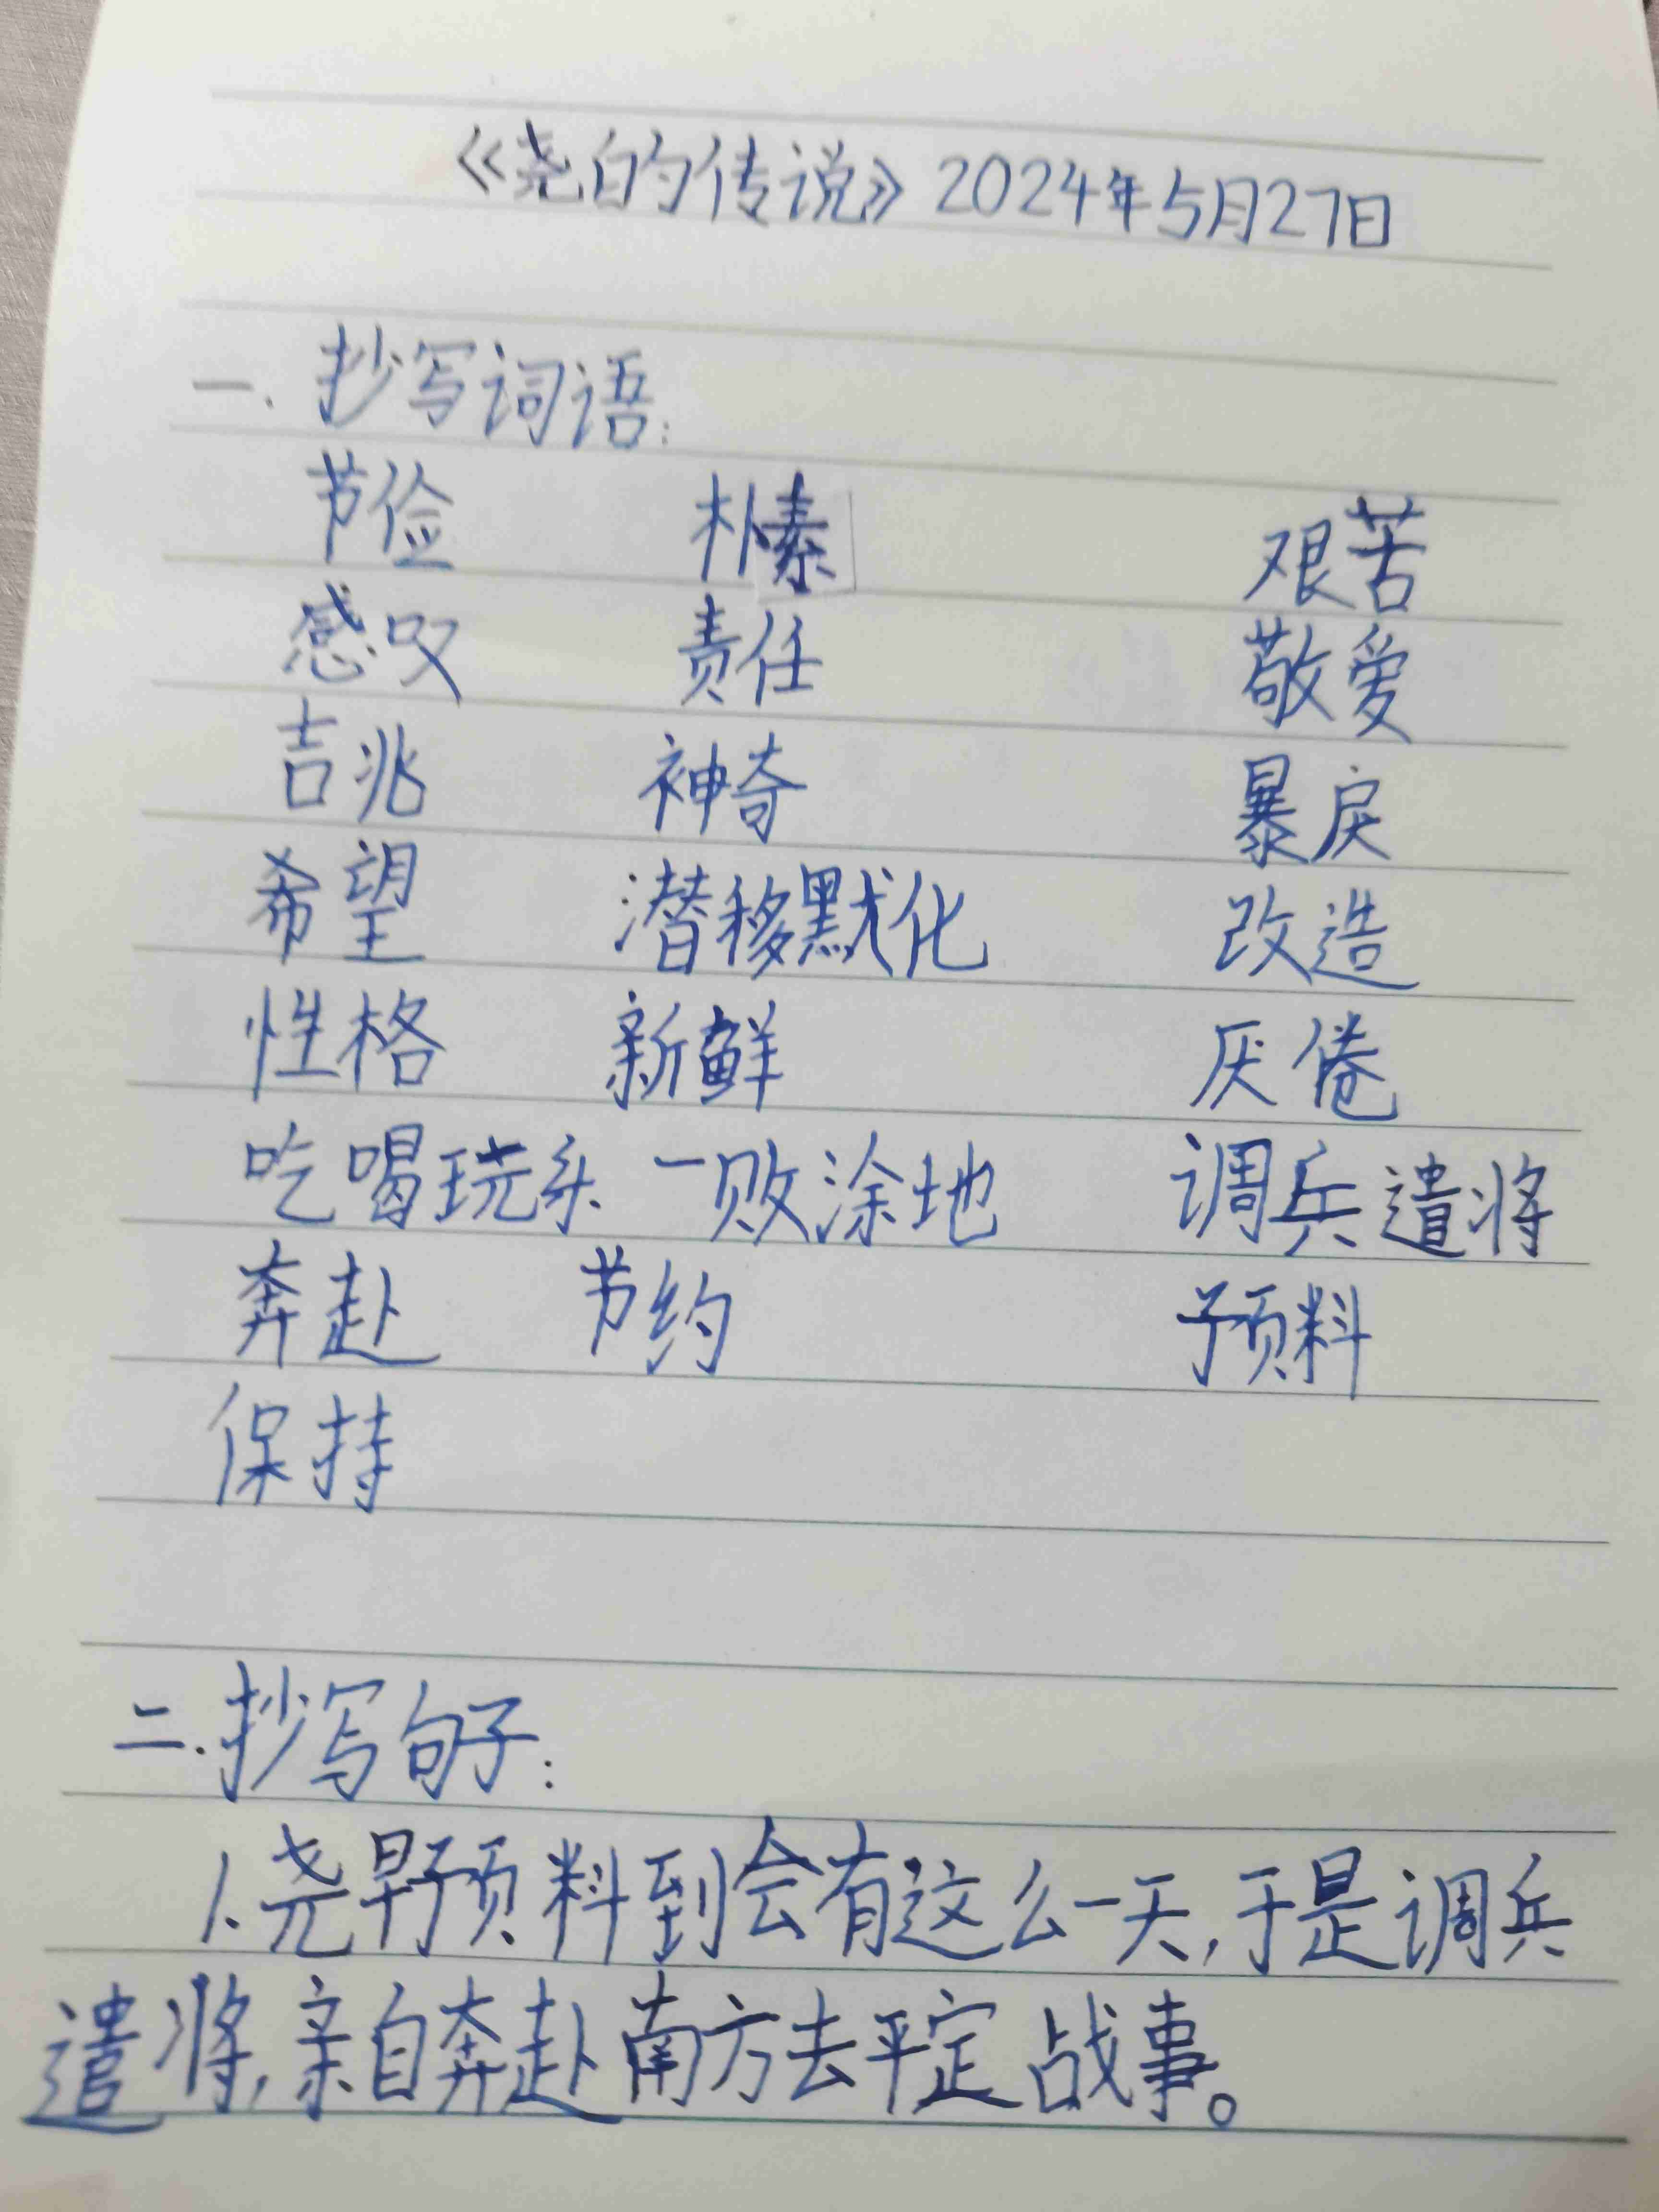 《尧的传说》2024年5月27日
一.抄写词语:
节俭 朴素 艰苦
感叹 责任 敬爱
吉兆 神奇 暴戾
希望 潜移默化 改造
性格 新鲜 厌倦
吃喝玩乐 一败涂地 调兵遣将
奔赴 节约 预料
保持
二.抄写句子:
1.尧早预料到会有这么一天,于是调兵
遣将,亲自奔赴南方去平定战事。